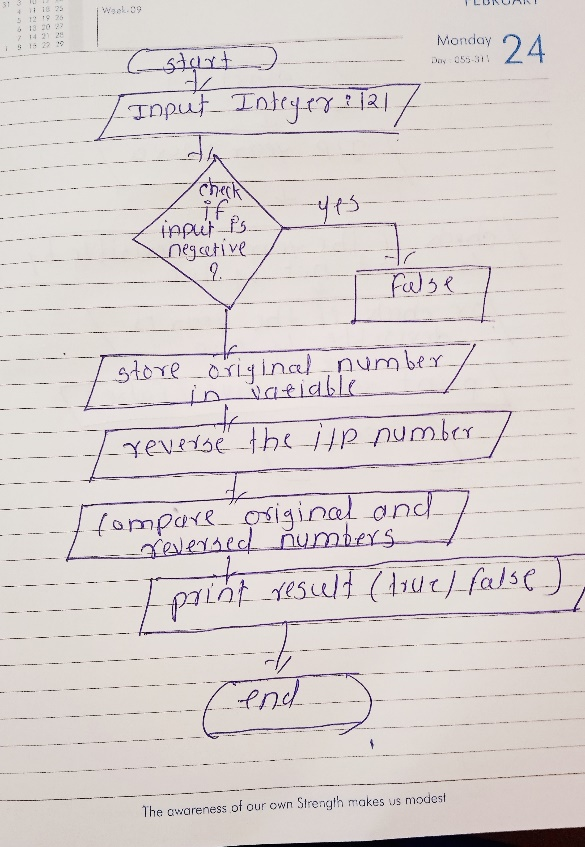 Week 09
FEBRUARY
Monday 24
Day : 055-311
start
Input Integer : 121
check
if
input is
negative
?
yes
false
store original number
in variable
reverse the i/p number
compare original and
reversed numbers
print result (true/false)
end
The awareness of our own Strength makes us modest